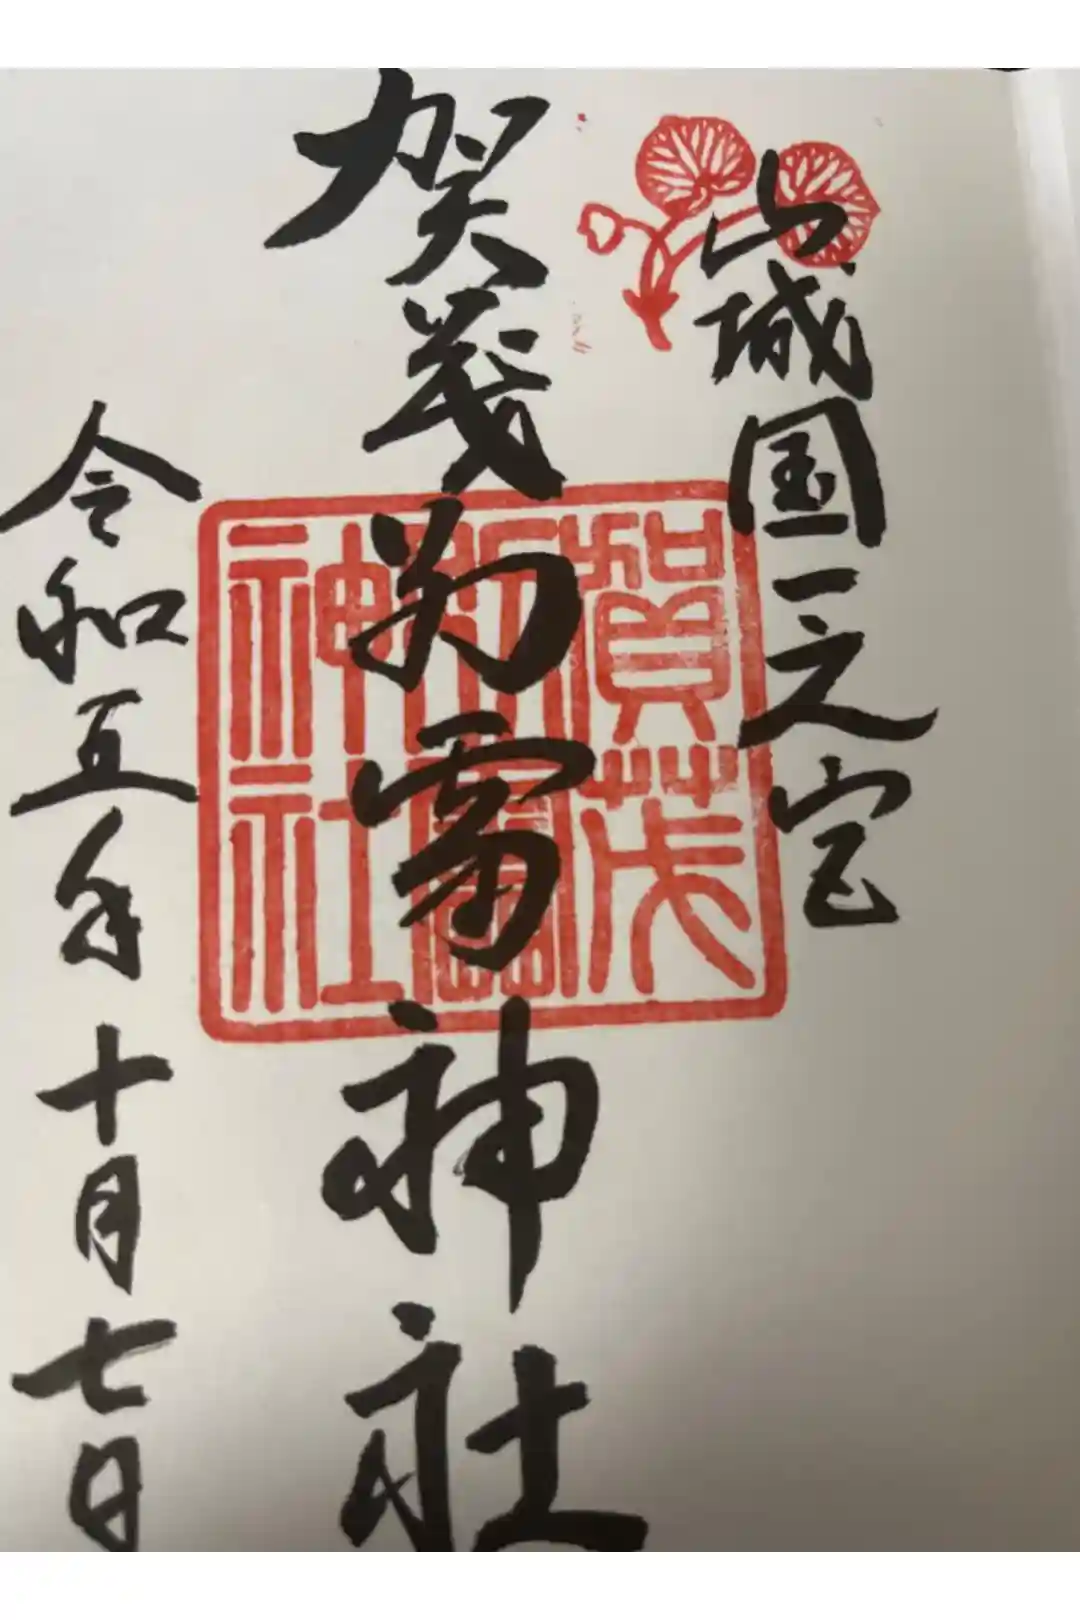 山城国一之宮
賀茂別雷神社
賀茂
別雷
神社
令和五年十月七日